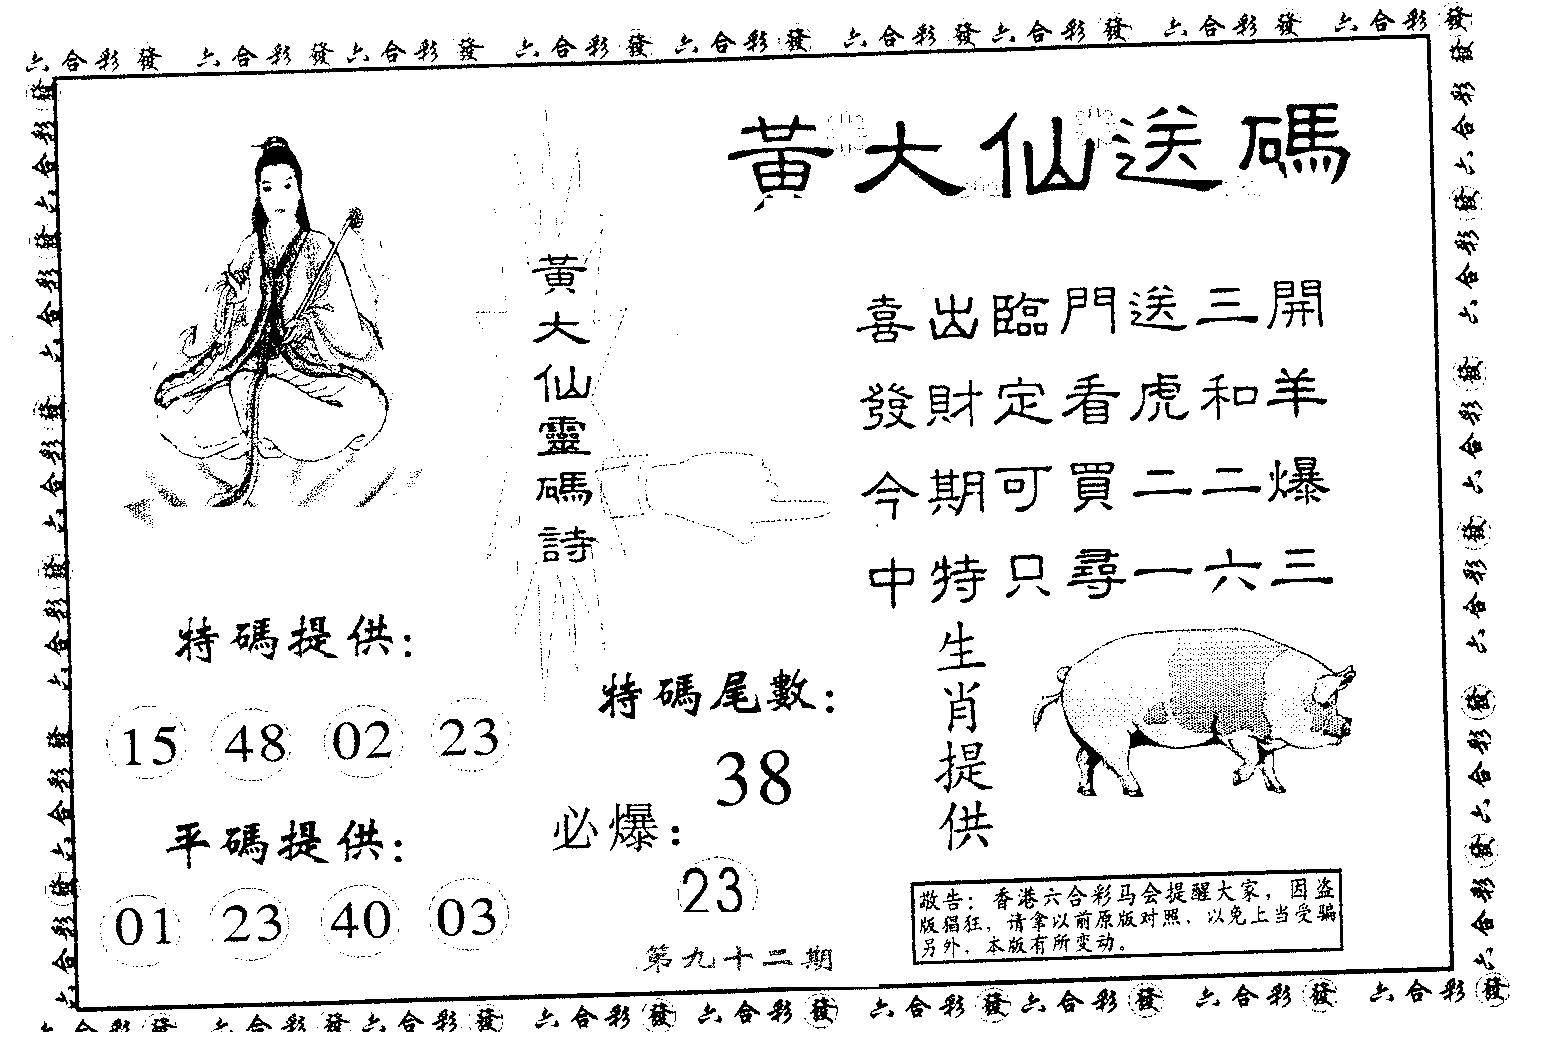 六合彩發 六合彩發六合彩發 六合彩發 六合彩發 六合彩發六合彩發 六合彩發 六合彩發
黃大仙送碼
黃大仙靈碼詩
喜出臨門送三開
發財定看虎和羊
今期可買二二爆
中特只尋一六三
特碼提供：
15 48 02 23
平碼提供：
01 23 40 03
特碼尾數：
38
必爆：
23
第九十二期
生肖提供
敬告：香港六合彩马会提醒大家，因盗
版猖狂，请拿以前原版对照，以免上当受骗
另外，本版有所变动。
六合彩發 六合彩發六合彩發 六合彩發 六合彩發 六合彩發六合彩發 六合彩發 六合彩發